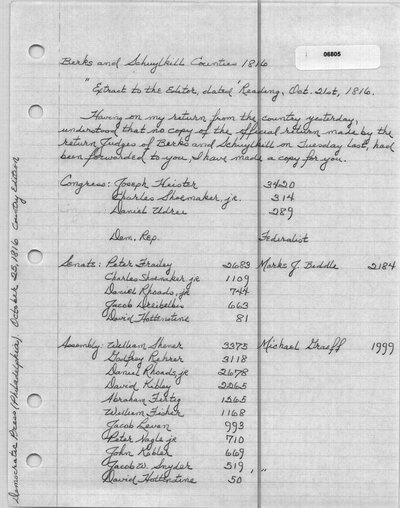 06805
Berks and Schuylkill Counties 1816
"Extract to the Editor, dated 'Reading, Oct. 21st, 1816.
Having on my return from the country yesterday,
understood that no copy of the official return made by the
return Judges of Berks and Schuylkill on Tuesday last, had
been forwarded to you, I have made a copy for you.
Congress: Joseph Heister 3420
Charles Shoemaker, jr. 314
Daniel Udree 289
Dem. Rep. Federalist
Senate: Peter Frailey 2683 Marks J. Biddle 2184
Charles Shoemaker jr 1109
Daniel Rhoads, jr 744
Jacob Dreibelbis 663
David Hottenstine 81
Assembly: William Shener 3375 Michael Graeff 1999
Godfrey Rehrer 3118
Daniel Rhoads, jr 2678
David Kebley 2265
Abraham Fertig 1265
William Fisher 1168
Jacob Levan 993
Peter Nagle jr 710
John Kebler 669
Jacob W. Snyder 519 , "
David Hottentine 50
Democratic Press (Philadelphia) October 25, 1816 Country Edition